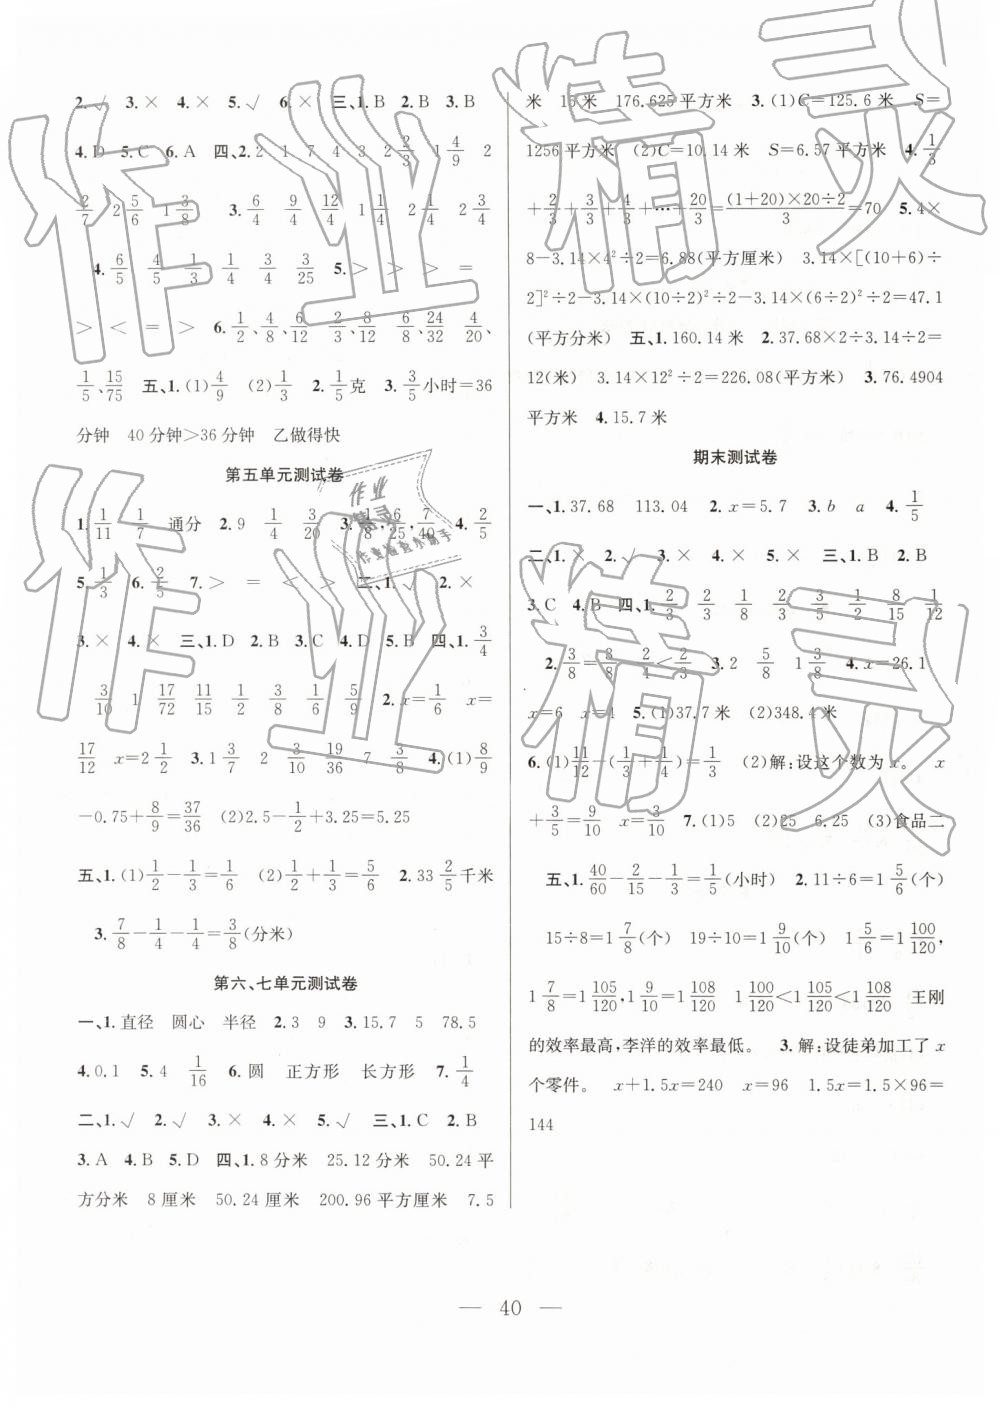 2.√ 3.× 4.× 5.√ 6.× 三、1.B 2.B 3.B
4.D 5.C 6.A 四、2.2 1 7 4 3 2 2/3 1 4/9 2
2/7 2 5/6 1 3/8 3. 6/4 9/4 12/4 1 1/4 2 1/4 2 3/4
4. 6/5 4/5 1/3 1/4 3/4 3/25 5.> > > =
> < = > 6. 1/2、4/8、6/12 2/3、8/12 6/8、24/32 4/20、
1/5、15/75 五、1.(1)4/9 (2)1/3 2.1/5克 3.3/5小时=36
分钟 40分钟>36分钟 乙做得快
第五单元测试卷
1. 1/11 1/7 通分 2.9 1/4 3/20 3.1/8,6/25,7/40 4.2/5
5. 1/3 6. 2/5 7.> = < > 二、1.√ 2.×
3.× 4.× 三、1.D 2.B 3.C 4.D 5.B 四、1.3/4
3/10 1 17/72 11/15 1/2 3/8 1/6 5/9 2.x=1/6 x=
17/12 x=2 1/2 3.1 3/7 2 3/10 19/36 7 3/8 4.(1)8/9
-0.75+8/9=37/36 (2)2.5-1/2+3.25=5.25
五、1.(1)1/2-1/3=1/6 (2)1/2+1/3=5/6 2.33 2/5千米
3.7/8-1/4-1/4=3/8(分米)
第六、七单元测试卷
一、1.直径 圆心 半径 2.3 9 3.15.7 5 78.5
4.0.1 5.4 1/16 6.圆 正方形 长方形 7.1/4
二、1.√ 2.√ 3.× 4.× 5.√ 三、1.C 2.B
3.A 4.B 5.D 四、1.8分米 25.12分米 50.24平
方分米 8厘米 50.24厘米 200.96平方厘米 7.5
米 15米 176.625平方米 3.(1)C=125.6米 S=
1256平方米 (2)C=10.14米 S=6.57平方米 4.1/3
+2/3+3/3+4/3+…+20/3=(1+20)×20÷2/3=70 5.4×
8-3.14×4²÷2=6.88(平方厘米) 3.14×[(10+6)÷
2]²÷2-3.14×(10÷2)²÷2-3.14×(6÷2)²÷2=47.1
(平方分米) 五、1.160.14米 2.37.68×2÷3.14÷2=
12(米) 3.14×12²÷2=226.08(平方米) 3.76.4904
平方米 4.15.7米
期末测试卷
一、1.37.68 113.04 2.x=5.7 3.b a 4.1/5
二、1.× 2.√ 3.× 4.× 5.× 三、1.B 2.B
3.C 4.B 四、1.2/3 2/3 1/8 2/3 3/5 1/2 8/15 1/12
2.3/8=3/8 2/4<2/3 3.2 5/8 1 3/8 4.x=26.1
x=6 x=4 5.(1)37.7米 (2)348.4米
6.(1)11/12-(1/3+1/4)=1/3 (2)解:设这个数为x。 x
+3/5=9/10 x=3/10 7.(1)5 (2)25 6.25 (3)食品二
五、1.40/60-2/15-1/3=1/5(小时) 2.11÷6=1 5/6(个)
15÷8=1 7/8(个) 19÷10=1 9/10(个) 1 5/6=1 100/120
1 7/8=1 105/120,1 9/10=1 108/120 1 100/120<1 105/120<1 108/120 王刚
的效率最高,李洋的效率最低。 3.解:设徒弟加工了x
个零件。 x+1.5x=240 x=96 1.5x=1.5×96=
144
— 40 —
作业精灵
作业精灵
作业
精灵